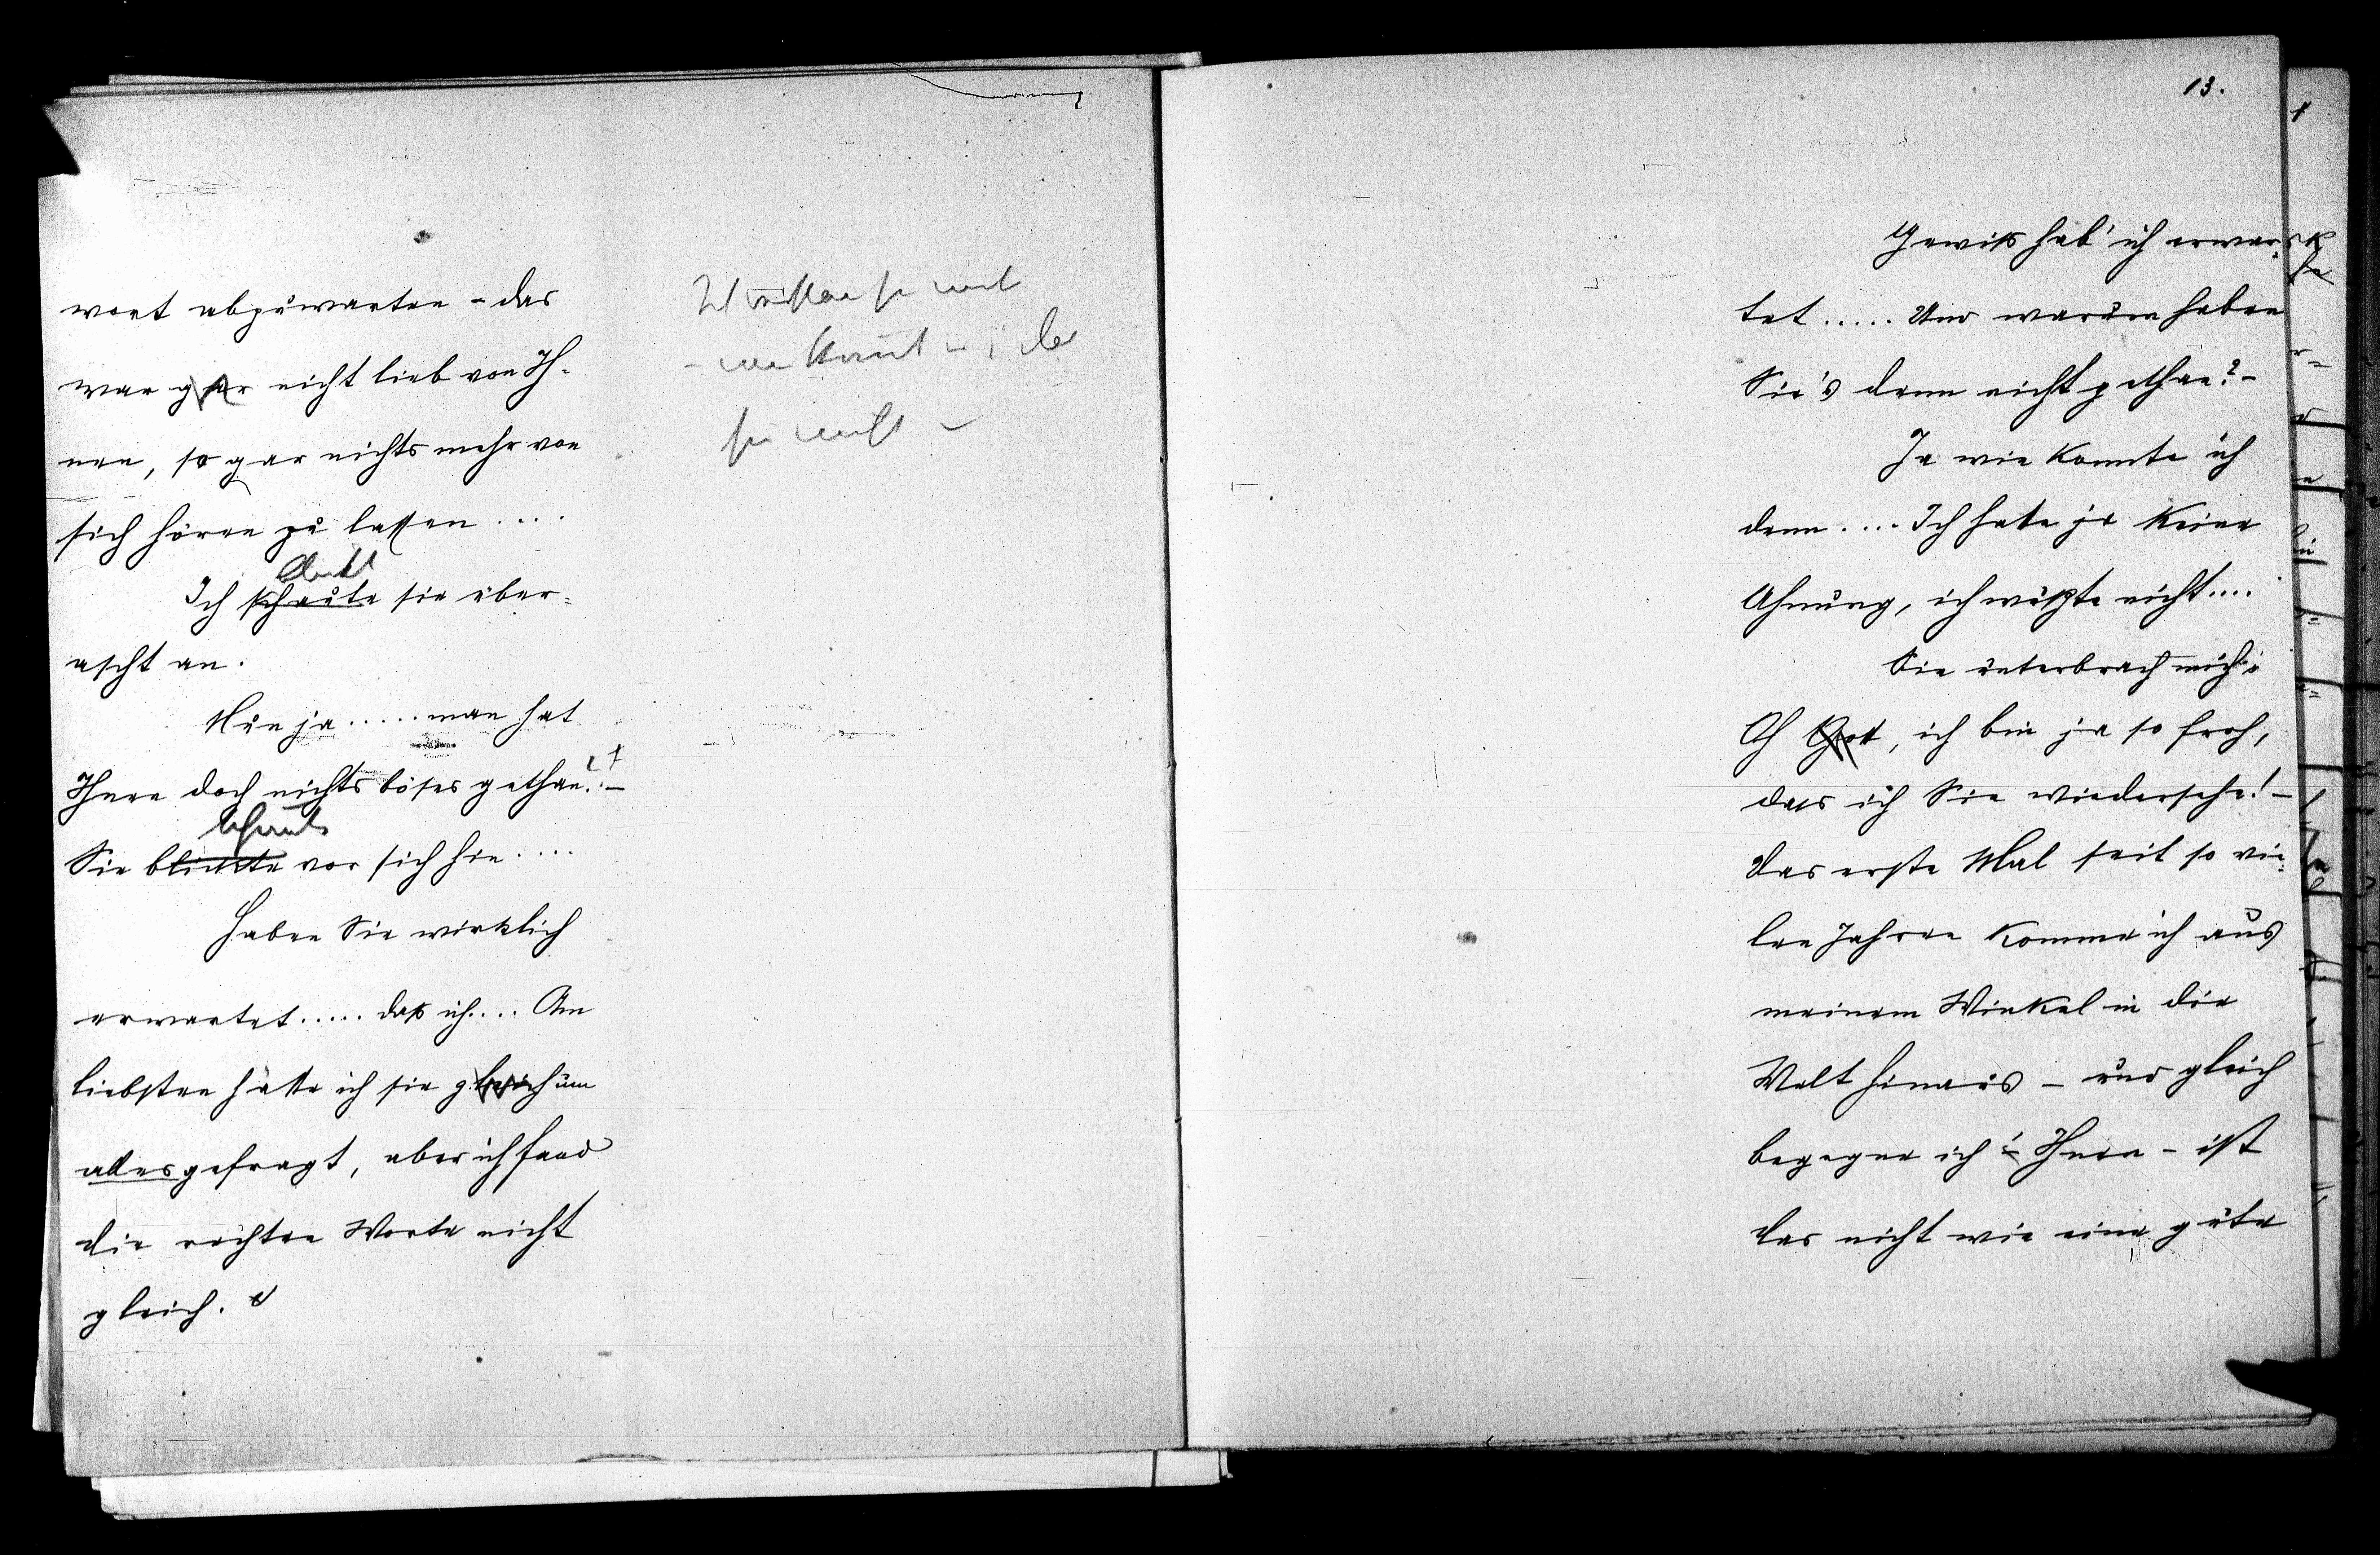 wort abzuwarten – das
war gar nicht lieb von Ih-
nen, so gar nichts mehr von
sich hören zu lassen ....
blickte
Ich schaute sie über-
ascht an.
Nun ja ..... man hat
Ihnen doch nichts böses gethan? –
schaute
Sie blickte vor sich hin ....
Haben Sie wirklich
erwartet ..... daß ich .... Am
liebsten hätte ich sie gleich um
alles gefragt, aber ich fand
die rechten Worte nicht
gleich.
Ich
13.
Gewiß hab' ich erwar-
tet ..... Und warum haben
Sie's denn nicht gethan? –
Ja wie konnte ich
denn .... Ich hatte ja keine
Ahnung, ich wußte nicht ....
Sie unterbrach mich:
Oh Gott, ich bin ja so froh,
dass ich Sie wiedersehe! –
Das erste Mal seit so vie-
len Jahren komme ich aus
meinem Winkel in die
Welt hinaus – und gleich
begegne ich Ihnen – ist
das nicht wie eine gute